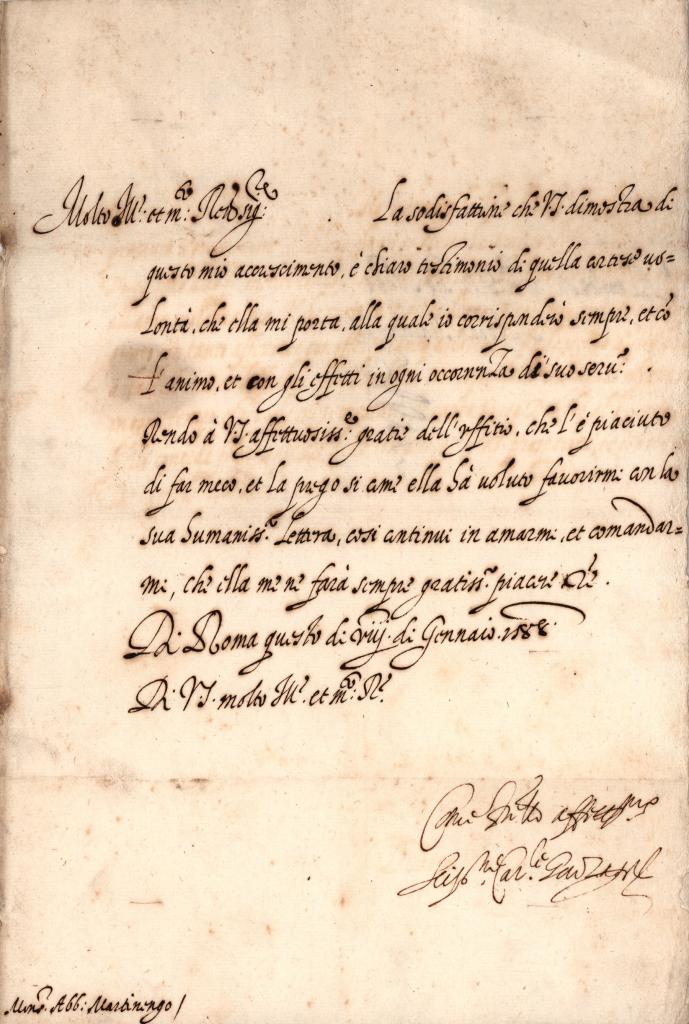 Molto Ill.e et m.to Rev.do Sig.re La sodisfattione che V.S. dimostra di
questo mio accrescimento, è chiaro testimonio di quella cortese uo=
lontà, che ella mi porta, alla quale io corrisponderò sempre, et cō
l'animo, et con gli effetti in ogni occorrenza di suo seru.o
Rendo à V.S. affettuosiss.e gratie dell'uffitio, che l'è piaciuto
di far meco, et la prego si come ella hà uoluto fauorirmi con la
sua humaniss.a lettera, cosi continui in amarmi, et comandar=
mi, che ella me ne farà sempre gratiss.o piacere
Di Roma questo di viij. di Gennaio. 1588.
Di V.S. molto Ill.e et m.to R.da
Come fra.llo affett.mo
Scip.ne Car.le
Mons.r Abb: Martinengo /